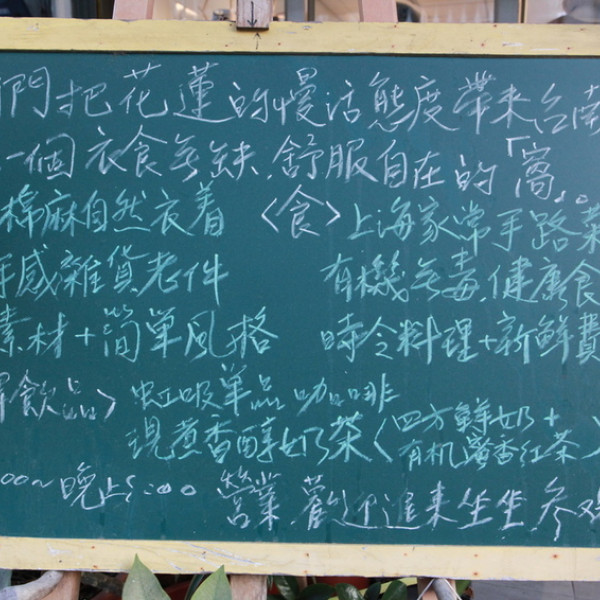 們把花蓮的慢活態度帶來台南
一個衣食無缺、舒服自在的「窩」。
棉麻自然衣着 〈食〉上海家常手路菜
手感雜貨老件 有機無毒、健康食
素材+簡單風格 時令料理+新鮮
飲品〉虹吸單品咖啡
現煮香醇奶茶〈四方鮮奶+
有机蜜香紅茶〉
00~晚上5:00 營業、歡迎進來坐坐 参观